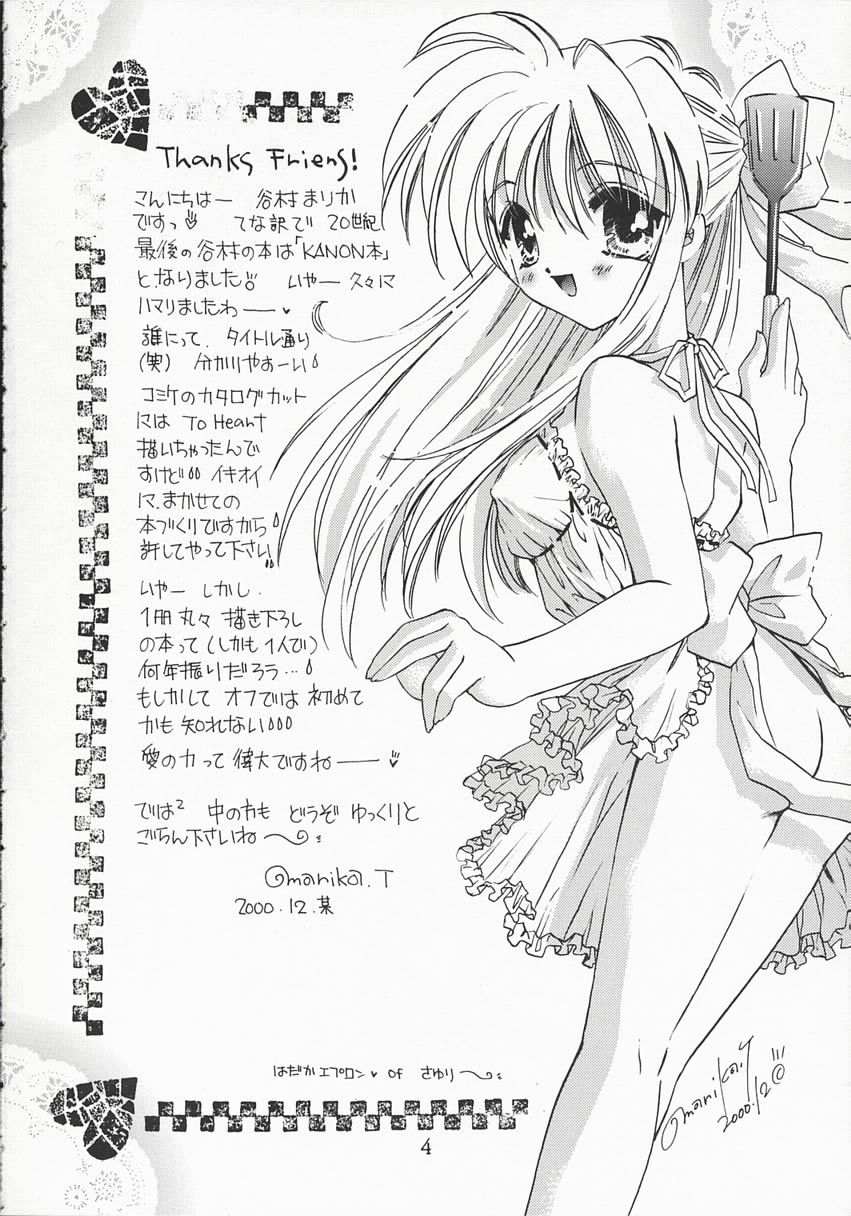 Thanks Friens!
こんにちはー 谷村まりか
ですっ てな訳で 20世紀
最後の谷村の本は「KANON本」
となりました!! いやー 久々に
ハマりましたわー
誰にって、タイトル通り
(笑) 分かりやすーい
コミケのカタログカット
には To Heart
描いちゃったんで
すけど イキオイ
に、まかせての
本づくりですから
許してやって下さい
いやー しかし、
1冊丸々 描き下ろし
の本って(しかも1人で)
何年振りだろう…
もしかして オフでは 初めて
かも 知れない
愛の力って 偉大ですねー
では² 中の方も どうぞ ゆっくりと
ごらん下さいね〜
marika.T
2000.12.某
はだかエプロン♥ of さゆり〜
marika.T
2000.12
©
4